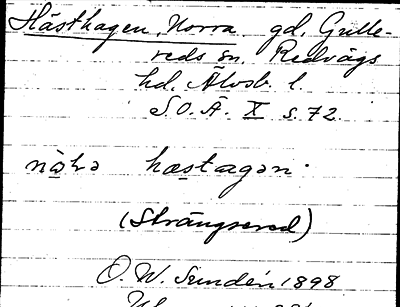 Hästhagen, Norra gd, Gulle-
reds sn. Redvägs
hd. Älvsb. l.
S.O.Ä. X s. 72.
hæstagən
(Strängsered)
O. W. Sundén 1898